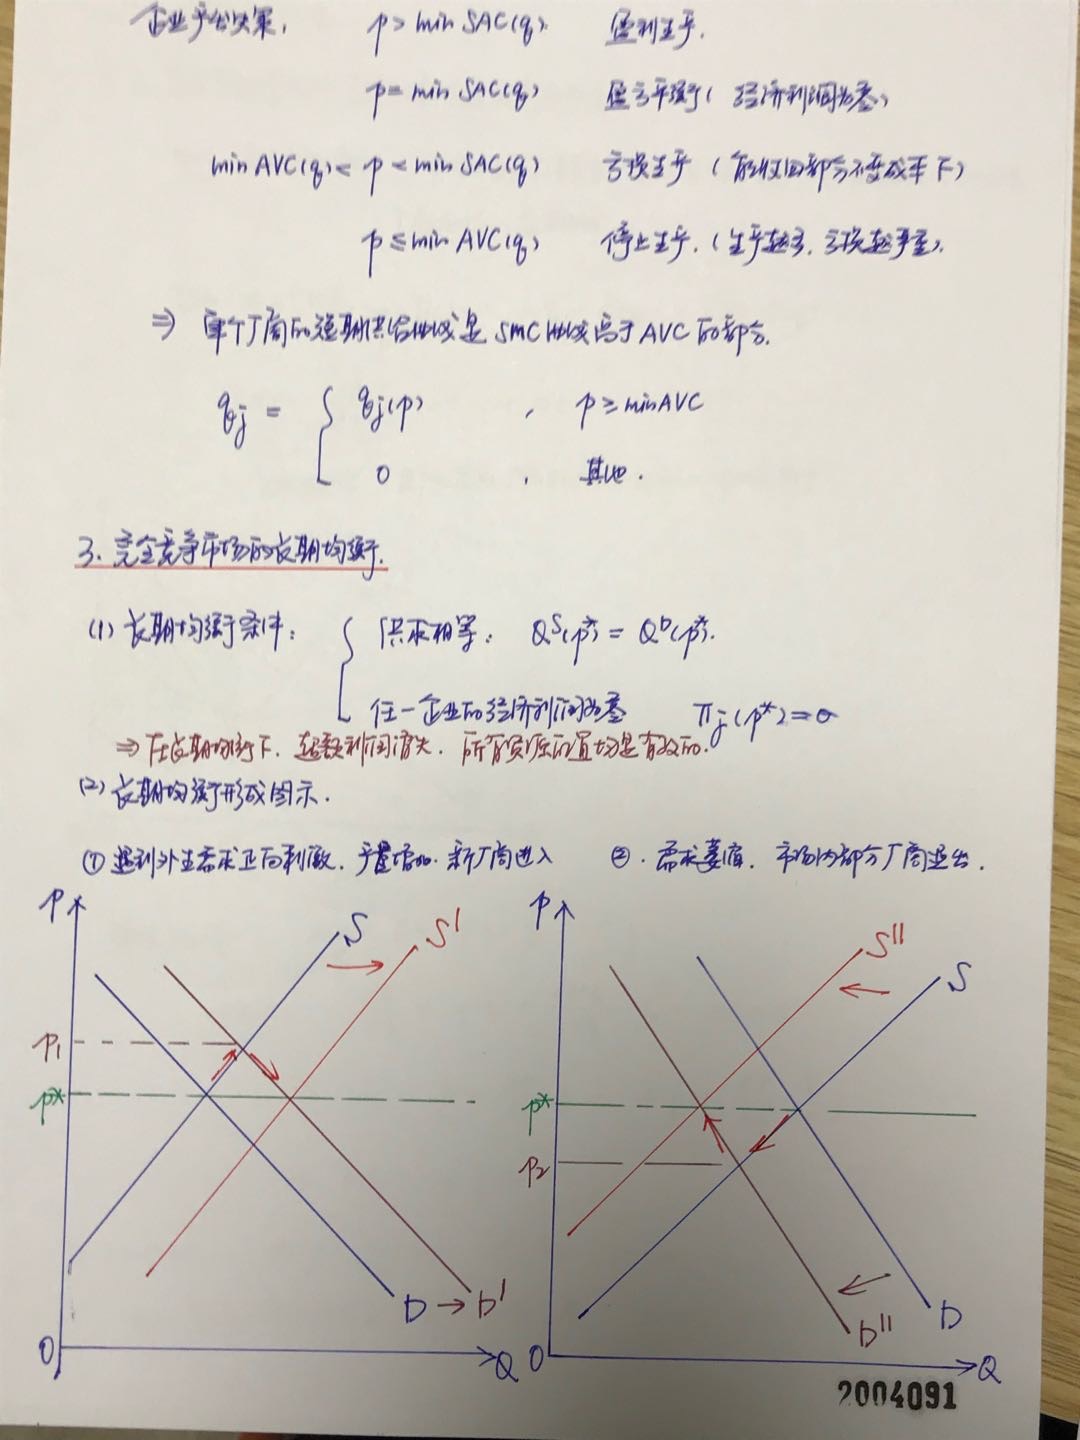 企业产出决策, p > min SAC(q) 盈利生产.
p = min SAC(q) 盈亏平衡 ( 经济利润为零)
min AVC(q) < p < min SAC(q) 亏损生产 ( 能收回部分不变成本 F)
p ≤ min AVC(q) 停止生产. (生产越多, 亏损越严重).
⇒ 单个厂商的短期供给曲线是 SMC 曲线高于 AVC 的部分.
qj = { qj(p) , p ≥ minAVC
0 , 其他.
3. 完全竞争市场的长期均衡.
(1) 长期均衡条件: { 供求相等: Q^S(p*) = Q^D(p*).
任一企业的经济利润为零 πj(p*) = 0
⇒ 在长期均衡下, 超额利润消失, 所有资源配置均是有效的.
(2) 长期均衡形成图示.
① 遇到外生需求正向刺激, 产量增加, 新厂商进入
②. 需求萎靡, 市场内部分厂商退出.
P S S'
P1
P*
D → D'
O Q
P S'' S
P*
P2
D'' D
O Q
2004091